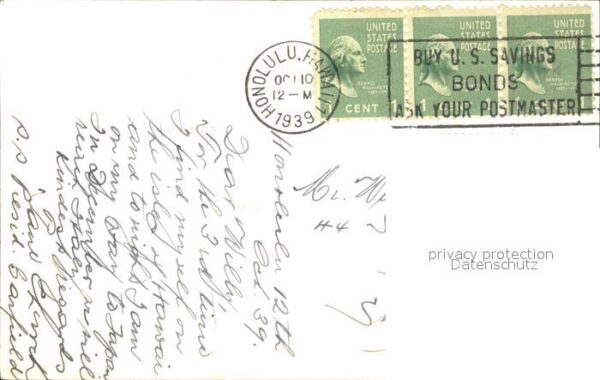 UNITED
STATES
POSTAGE
UNITED
STATES
POSTAGE
UNITED
STATES
POSTAGE
GEORGE
WASHINGTON
CENT 1
1
HONOLULU, HAWAII
OCT 10
12 - M
1939
BUY U.S. SAVINGS
BONDS
ASK YOUR POSTMASTER
Honolulu 12th
Oct 39.
Dear Willy
For the 3rd time
I find myself on
the isles of Hawaii
and to night I am
on my way to Japan
In December I will
visit
Kindest regards
S.S Presid. Garfield
Mr. We
H4
privacy protection
Datenschutz